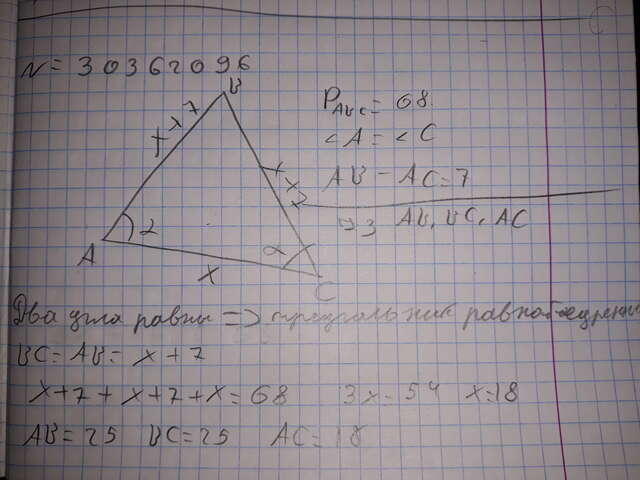 N = 30362096
B
x+7
P ABC = 68
∠A = ∠C
AB - AC = 7
x+7
AB, BC, AC
α
α
A
x
C
Два угла равны => треугольник равнобедренный
BC = AB = x + 7
x+7 + x+7 + x = 68 3x = 54 x=18
AB = 25 BC = 25 AC = 18